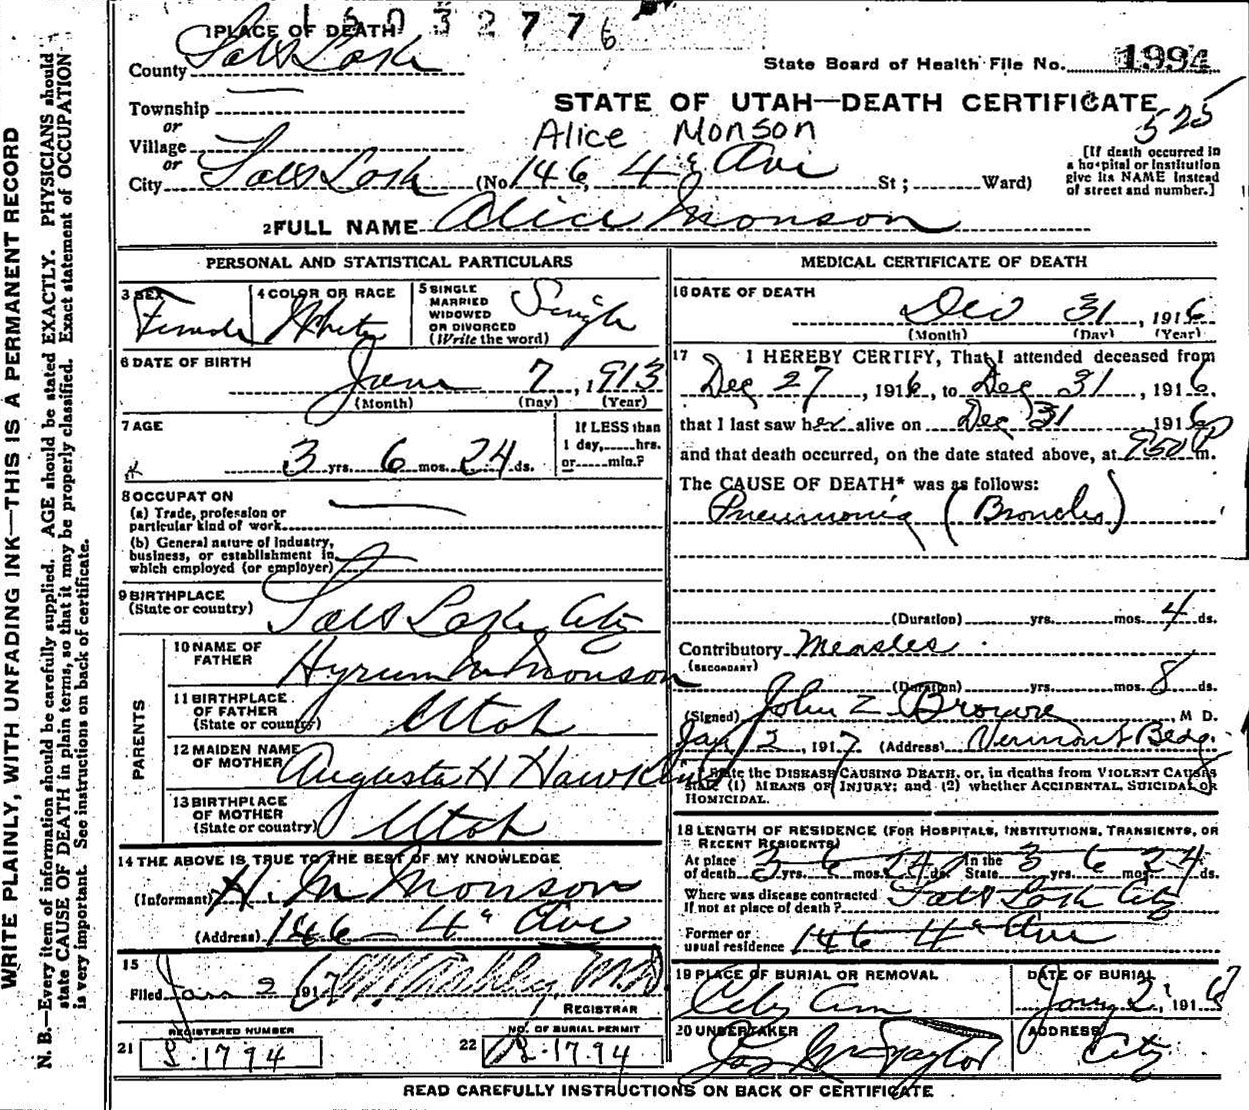 1503277 6
1 PLACE OF DEATH
County Salt Lake
State Board of Health File No. 1994
Township
STATE OF UTAH—DEATH CERTIFICATE
525
or
Village
Alice Monson
or
City Salt Lake (No 146, 4" Ave St; Ward)
[If death occurred in
a hospital or institution
give its NAME instead
of street and number.]
2 FULL NAME Alice Monson
PERSONAL AND STATISTICAL PARTICULARS
3 SEX
Female
4 COLOR OR RACE
White
5 SINGLE
MARRIED
WIDOWED
OR DIVORCED
(Write the word)
Single
6 DATE OF BIRTH
June 7, 1913
(Month) (Day) (Year)
7 AGE
3 yrs. 6 mos. 24 ds.
If LESS than
1 day, hrs.
or min.?
8 OCCUPATION
(a) Trade, profession or
particular kind of work
(b) General nature of industry,
business, or establishment in
which employed (or employer)
9 BIRTHPLACE
(State or country) Salt Lake City
PARENTS
10 NAME OF
FATHER Hyrum M Monson
11 BIRTHPLACE
OF FATHER
(State or country) Utah
12 MAIDEN NAME
OF MOTHER Augusta H Hawkins
13 BIRTHPLACE
OF MOTHER
(State or country) Utah
14 THE ABOVE IS TRUE TO THE BEST OF MY KNOWLEDGE
(Informant) H. M Monson
(Address) 146 - 4" Ave
15
Filed Jan 2 1917 M.D.
REGISTRAR
REGISTERED NUMBER
21 S.1794
NO. OF BURIAL PERMIT
22 S.1794
MEDICAL CERTIFICATE OF DEATH
16 DATE OF DEATH
Dec 31, 1916
(Month) (Day) (Year)
17 I HEREBY CERTIFY, That I attended deceased from
Dec 27, 1916, to Dec 31, 1916,
that I last saw her alive on Dec 31 1916
and that death occurred, on the date stated above, at 950 P m.
The CAUSE OF DEATH* was as follows:
Pneumonia (Broncho)
(Duration) yrs. mos. 4 ds.
Contributory Measles
(SECONDARY)
(Duration) yrs. mos. 8 ds.
(Signed) John Z Browne, M D.
Jan 2, 1917 (Address) Vermont Bldg.
* State the DISEASE CAUSING DEATH, or, in deaths from VIOLENT CAUSES
state (1) MEANS OF INJURY; and (2) whether ACCIDENTAL, SUICIDAL or
HOMICIDAL.
18 LENGTH OF RESIDENCE (FOR HOSPITALS, INSTITUTIONS, TRANSIENTS, OR
RECENT RESIDENTS)
At place
of death 3 yrs. 6 mos. 24 ds. In the
State 3 6 mos 24 ds.
Where was disease contracted
If not at place of death? Salt Lake City
Former or
usual residence 146 4" Ave
19 PLACE OF BURIAL OR REMOVAL
City Cem
DATE OF BURIAL
Jany 2, 1916
20 UNDERTAKER
Jos Wm Taylor
ADDRESS
City
READ CAREFULLY INSTRUCTIONS ON BACK OF CERTIFICATE
WRITE PLAINLY, WITH UNFADING INK—THIS IS A PERMANENT RECORD
N. B.—Every item of information should be carefully supplied. AGE should be stated EXACTLY. PHYSICIANS should
state CAUSE OF DEATH in plain terms, so that it may be properly classified. Exact statement of OCCUPATION
is very important. See instructions on back of certificate.